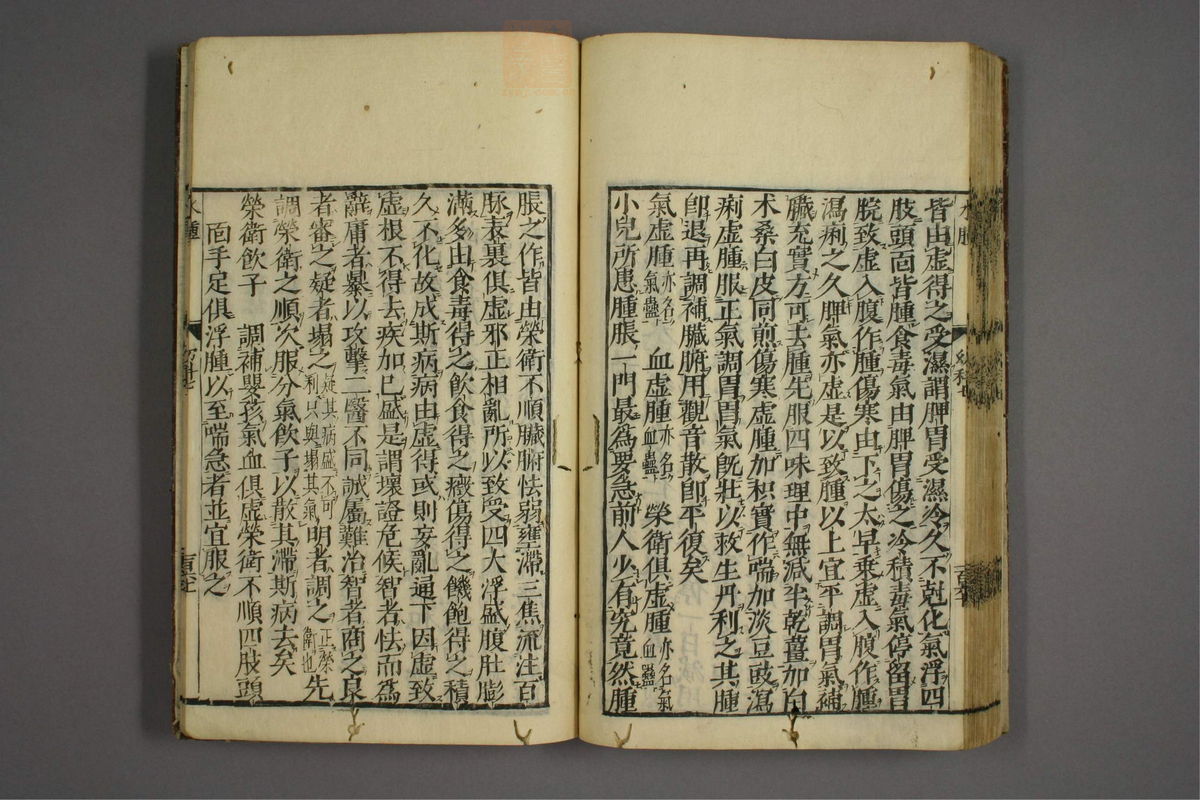 皆由虛得之受濕謂脾胃受濕冷久不尅化氣浮四
肢頭面皆腫食毒氣由脾胃傷之冷積毒氣停留胃
脘致虛入腹作腫傷寒由下之太早乗虛入腹作腫
瀉痢之久脾氣亦虛是以致腫以上宜平調胃氣補
臓充實方可去腫先服四味理中無減半乾薑加白
术桑白皮同煎傷寒虛腫加枳實作喘加淡豆豉瀉
痢虛腫服正氣調胃胃氣旣壯以救生丹利之其腫
卽退再調補臓腑用觀音散卽平復矣
氣虛腫亦名氣蠱 血虛腫亦名血蠱 榮衛俱虛腫亦名氣血蠱
小兒所患腫脹一門最爲要急前人少有究竟然腫
脹之作皆由榮衛不順臓腑怯弱壅滯三焦流注百
脉表裏俱虛邪正相亂所以致受四大浮盛腹肚膨
滿多由食毒得之飲食得之癥傷得之饑飽得之積
久不化故成斯病病由虛得或則妄亂通下因虛致
虛根不得去疾加已盛是謂壞證危候智者怯而爲
辭庸者暴以攻擊二醫不同誠屬難治智者商之良
者審之疑者塌之疑其病盛不可利只與塌其氣明者調之正榮衛也先
調榮衛之順次服分氣飲子以散其滯斯病去矣
榮衛飲子 調補嬰孩氣血俱虛榮衛不順四肢頭
面手足俱浮腫以至喘急者並宜服之
水腫